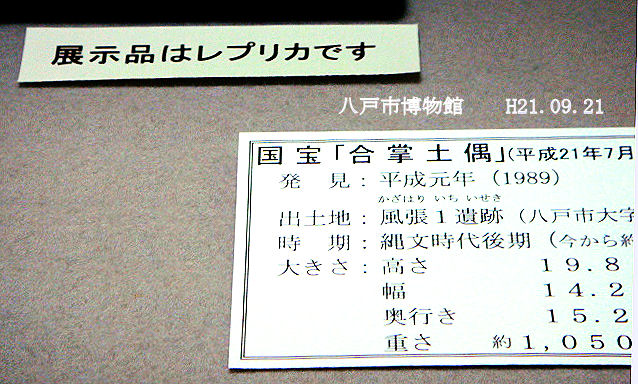 展示品はレプリカです
八戸市博物館 H21.09.21
国宝「合掌土偶」(平成21年7月
発 見：平成元年（1989）
かざはり いち いせき
出土地：風張１遺跡（八戸市大字
時 期：縄文時代後期（今から約
大きさ：高さ １９.８
幅 １４.２
奥行き １５.２
重さ 約１,０５０